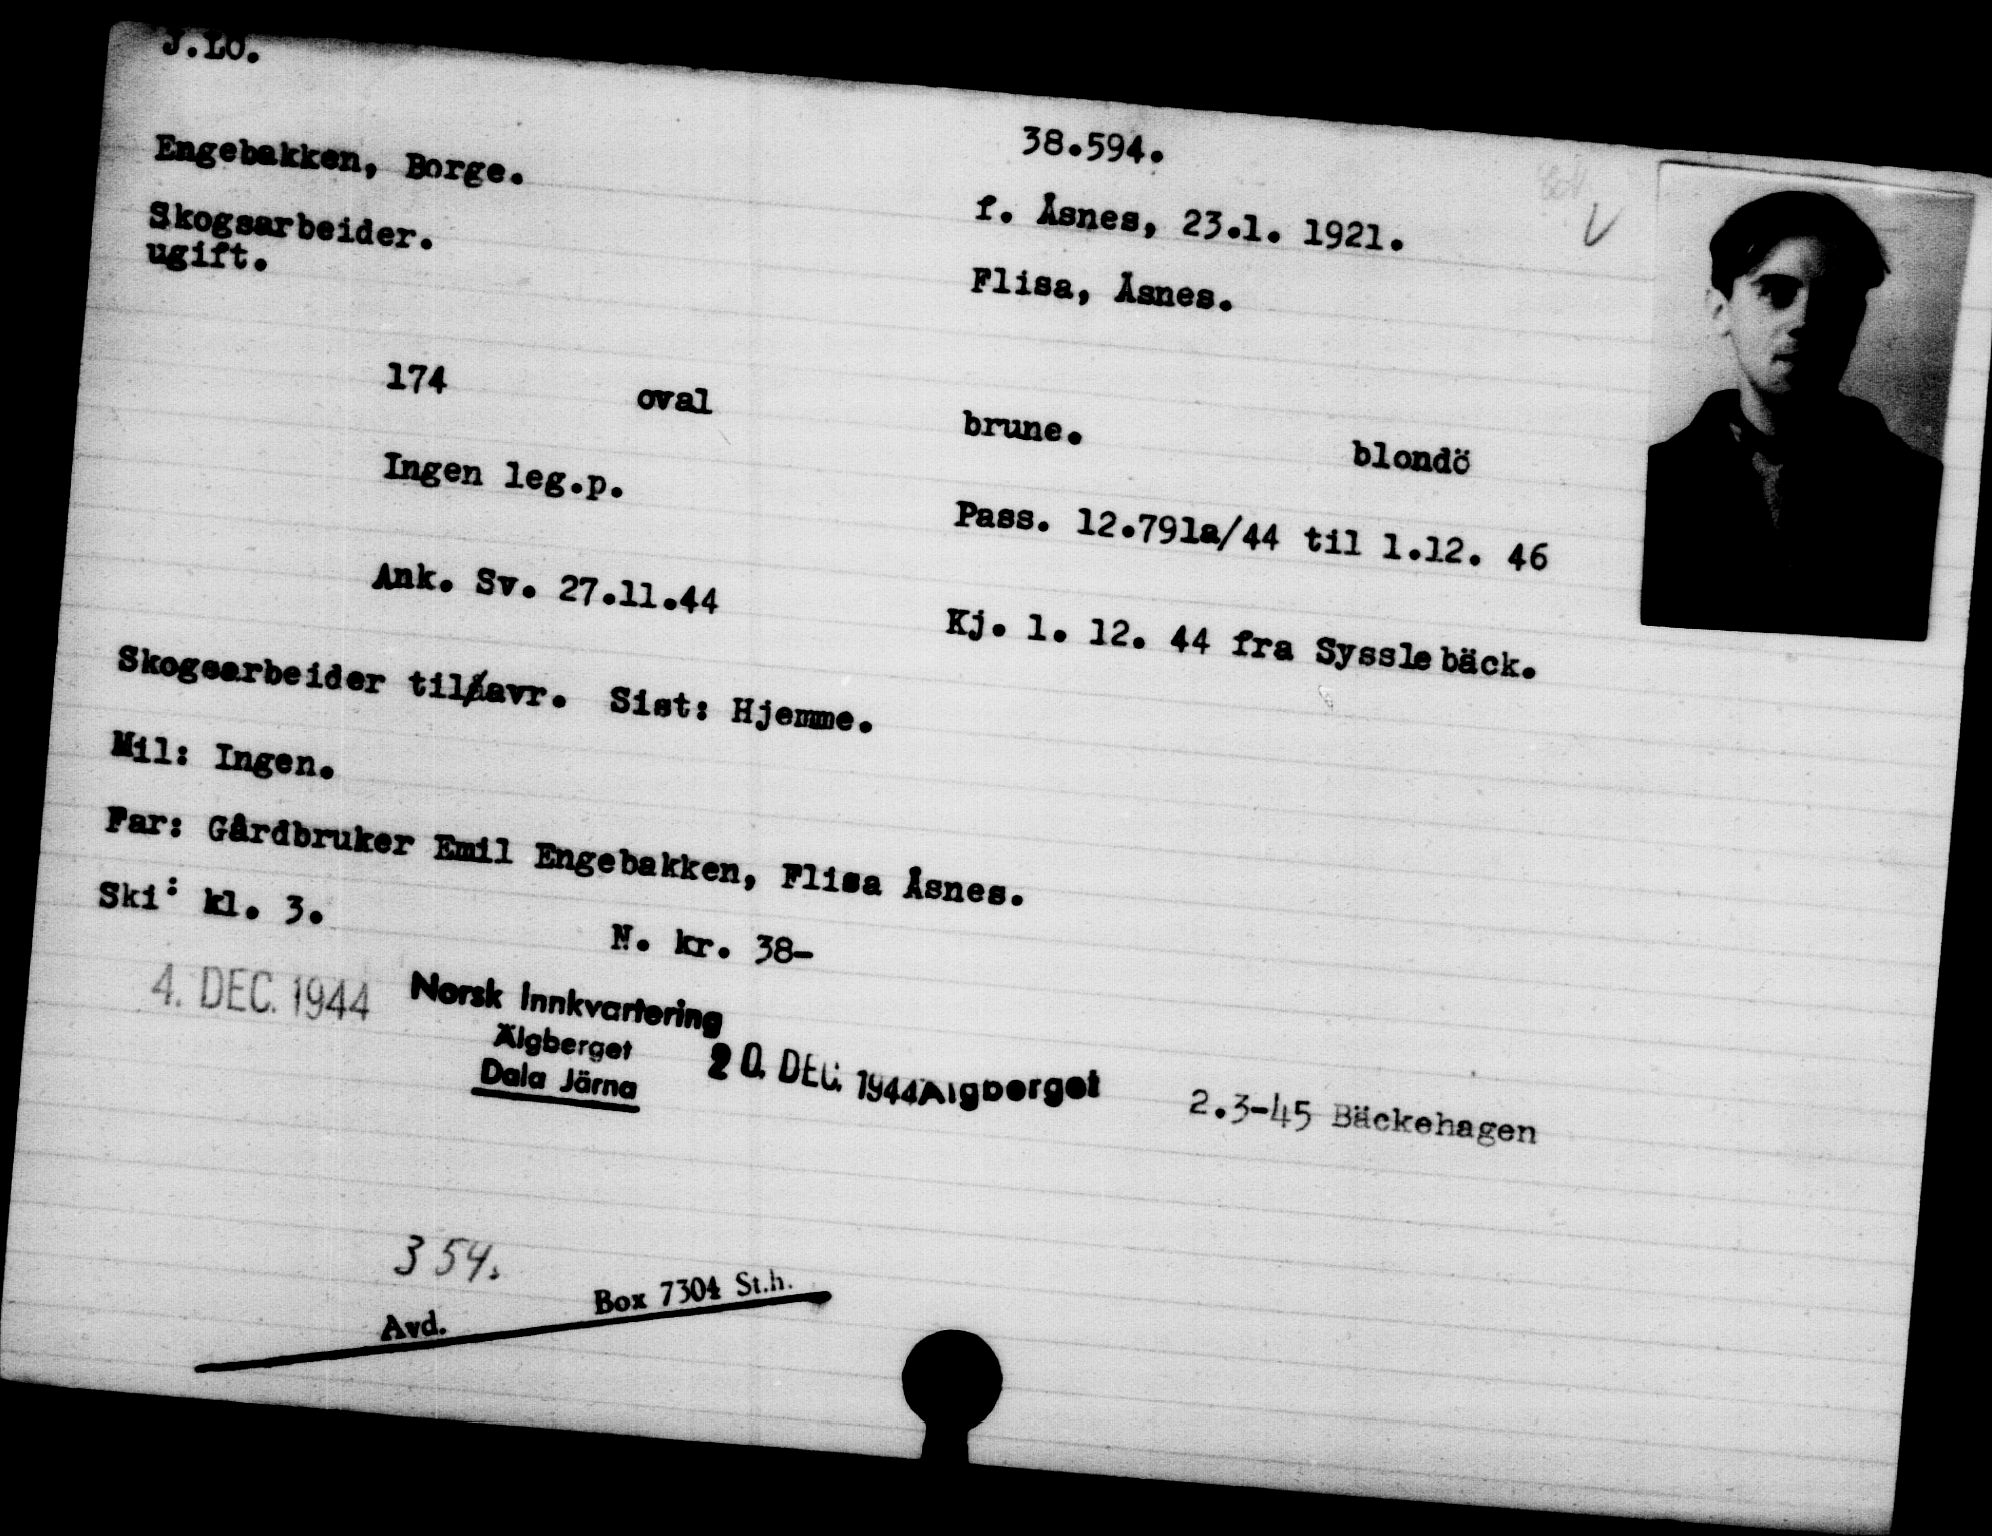 J.LO.
38.594.
Engebakken, Borge.
f. Åsnes, 23.1. 1921.
Skogsarbeider.
ugift.
Flisa, Åsnes.
174 oval brune. blondö
Ingen leg.p. Pass. 12.791a/44 til 1.12. 46
Ank. Sv. 27.11.44 Kj. 1. 12. 44 fra Sysslebäck.
Skogsarbeider til avr. Sist: Hjemme.
Mil: Ingen.
Far: Gårdbruker Emil Engebakken, Flisa Åsnes.
Ski: kl. 3. N. kr. 38-
4. DEC. 1944 Norsk Innkvartering
Älgberget
Dala Järna
20. DEC. 1944 Älgberget
2.3-45 Bäckehagen
354.
Avd. Box 7304 St.h.